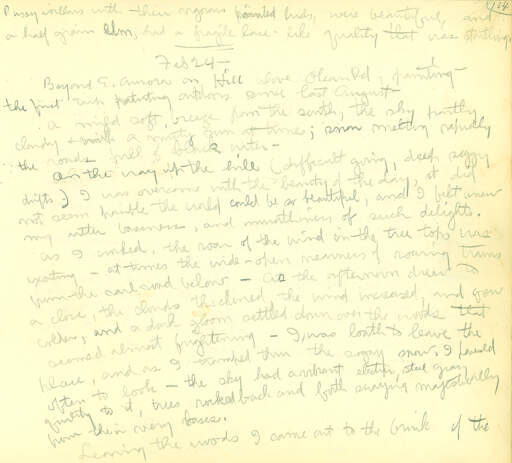 164
Pussy willows with their gorgeous pointed buds, were beautiful, and
a half grown elm, had a fragile lace-like quality that was startling
Feb 24 —
Beyond E. Aurora on Hill above Olean Rd, painting —
the first day painting outdoors since last August —
a mild soft breeze from the south, the sky partly
cloudy + with a misty sun at times; snow melting rapidly
the roads full of black water —
On the way up the hill (difficult going, deep soggy
drifts) I was overcome with the beauty of the day, it did
not seem possible the world could be so beautiful, and I felt anew
my utter lowness, and unworthiness of such delights.
As I worked, the roar of the wind in the tree tops was
exciting — at times the wide-open nearness of roaring trains
from the railroad below — As the afternoon drew to
a close, the clouds thickened the wind increased, and grew
colder, and a dark gloom settled down over the woods that
seemed almost frightening — I was loath to leave the
place, and as I tramped thru the soggy snow, I paused
often to look — the sky had a vibrant electric, steel gray
quality to it, trees rocked back and forth swaying majestically
from their very bases.
Leaving the woods I came out to the brink of the